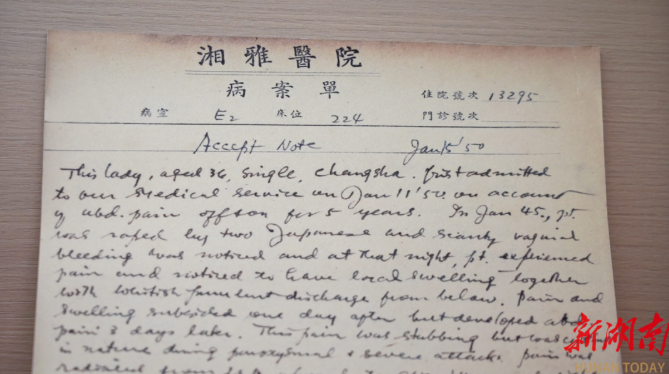 湘雅醫院
病案單
住院號次 13295
病室 E2 床位 224 門診號次
Accept Note Jan 15 '50
This lady, aged 36, single, Changsha. first admitted
to our medical service on Jan 11 '50 on account
of abd. pain off & on for 5 years. In Jan 45., pt.
was raped by two Japanese and scanty vaginal
bleeding was noticed and at that night, pt. experienced
pain and noticed to have local swelling together
with whitish purulent discharge from below. Pain and
swelling subsided one day after but developed abd.
pain 3 days later. This pain was stabbing but
in nature during paroxysmal & severe attack. pain was
radiated from
新湖南
HUNAN TODAY